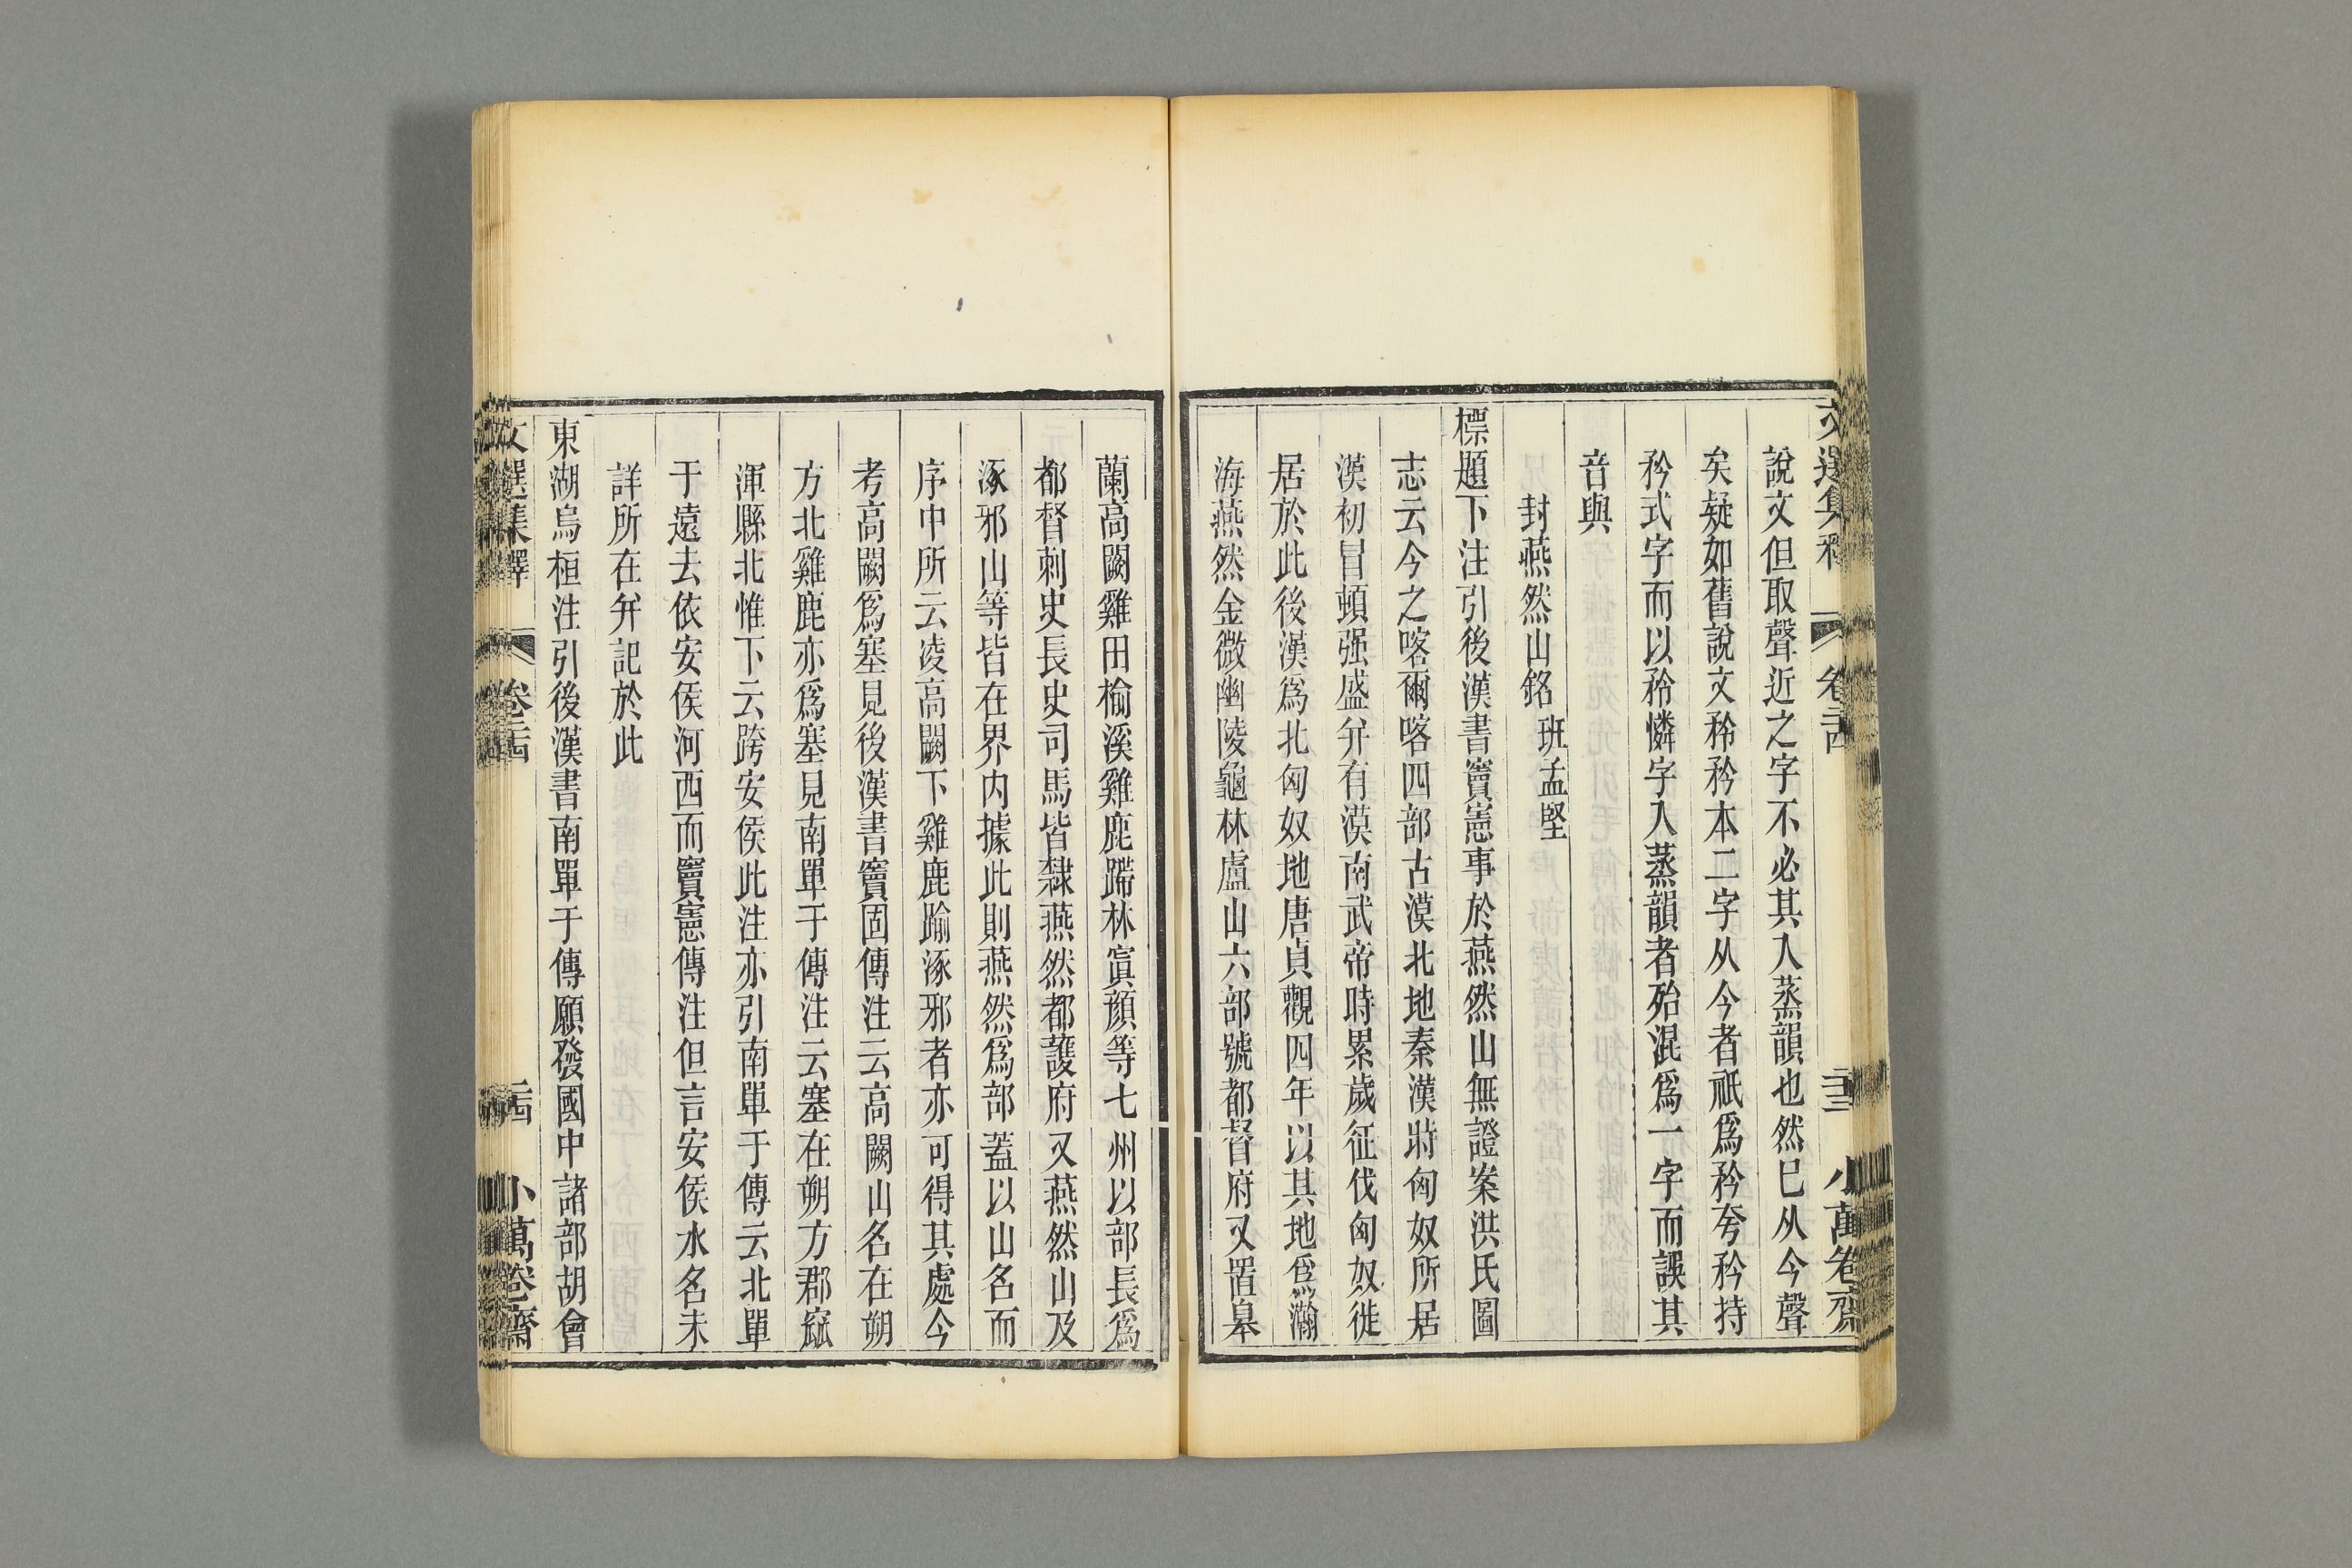 文選集釋 卷二十四 二十三 小萬卷齋
說文但取聲近之字不必其入蒸韻也然已从今聲
矣疑如舊說文矜矜本二字从今者祇爲矜夸矜持
矜式字而以矜憐字入蒸韻者殆混爲一字而誤其
音與
封燕然山銘 班孟堅
標題下注引後漢書竇憲事於燕然山無證案洪氏圖
志云今之喀爾喀四部古漠北地秦漢時匈奴所居
漢初冒頓强盛并有漠南武帝時累歲征伐匈奴徙
居於此後漢爲北匈奴地唐貞觀四年以其地爲瀚
海燕然金微幽陵龜林盧山六部號都督府又置皋
蘭高闕雞田榆溪雞鹿蹛林窴顏等七州以部長爲
都督刺史長史司馬皆隸燕然都護府又燕然山及
涿邪山等皆在界内據此則燕然爲部蓋以山名而
序中所云凌高闕下雞鹿踰涿邪者亦可得其處今
考高闕爲塞見後漢書竇固傳注云高闕山名在朔
方北雞鹿亦爲塞見南單于傳注云塞在朔方郡窳
渾縣北惟下云跨安侯此注亦引南單于傳云北單
于遠去依安侯河西而竇憲傳注但言安侯水名未
詳所在并記於此
東湖烏桓注引後漢書南單于傳願發國中諸部胡會
文選集釋 卷二十四 二十四 小萬卷齋